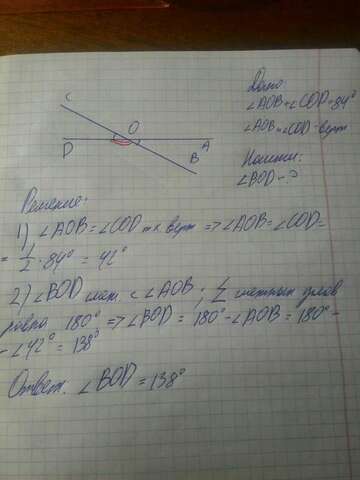 C
O
D
A
B
Дано:
∠AOB+∠COD=84°
∠AOB и ∠COD - верт
Найти:
∠BOD - ?
Решение:
1) ∠AOB=∠COD т.к верт => ∠AOB=∠COD=
= 1/2 · 84° = 42°
2) ∠BOD смеж. с ∠AOB; ∑ смежных углов
равна 180° => ∠BOD = 180° - ∠AOB = 180° -
- ∠42° = 138°
Ответ. ∠BOD = 138°